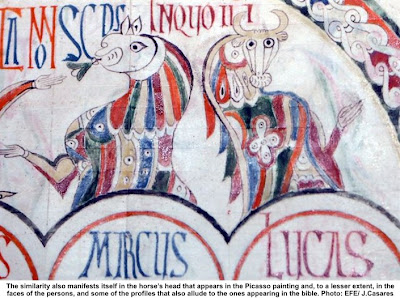 SCDS INQUO
S MARCUS LUCAS
The similarity also manifests itself in the horse's head that appears in the Picasso painting and, to a lesser extent, in the
faces of the persons, and some of the profiles that also allude to the ones appearing in the bible. Photo: EFE/ J.Casares